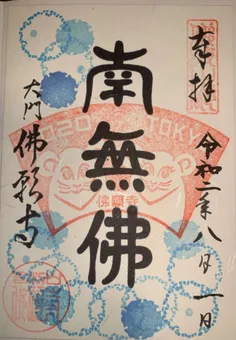 奉拝
令和二年八月一日
南無佛
2020 TOKYO
佛願寺
大門 佛願寺